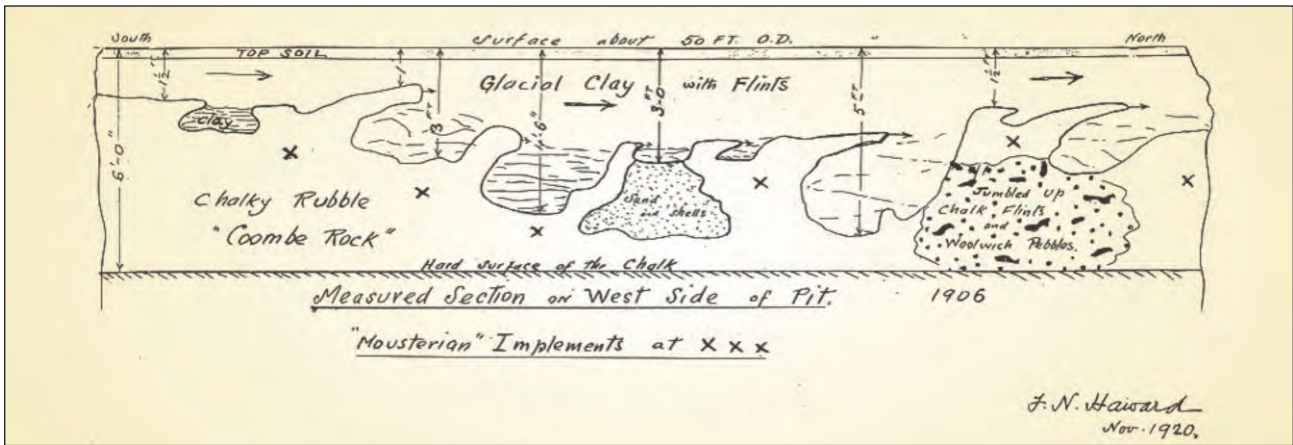 South
Surface about 50 FT. O.D.
North
TOP SOIL
1½ FT
1'
1½ FT
Glacial Clay with Flints
Clay
3 FT
4'-6"
3-0 FT
5 FT
6'-0"
Chalky Rubble
"Coombe Rock"
Sand
and shells
Jumbled up
Chalk Flints
and
Woolwich Pebbles.
Hard Surface of the Chalk
Measured Section on West Side of Pit. 1906
"Mousterian" Implements at X X X
F. N. Haward
Nov. 1920.